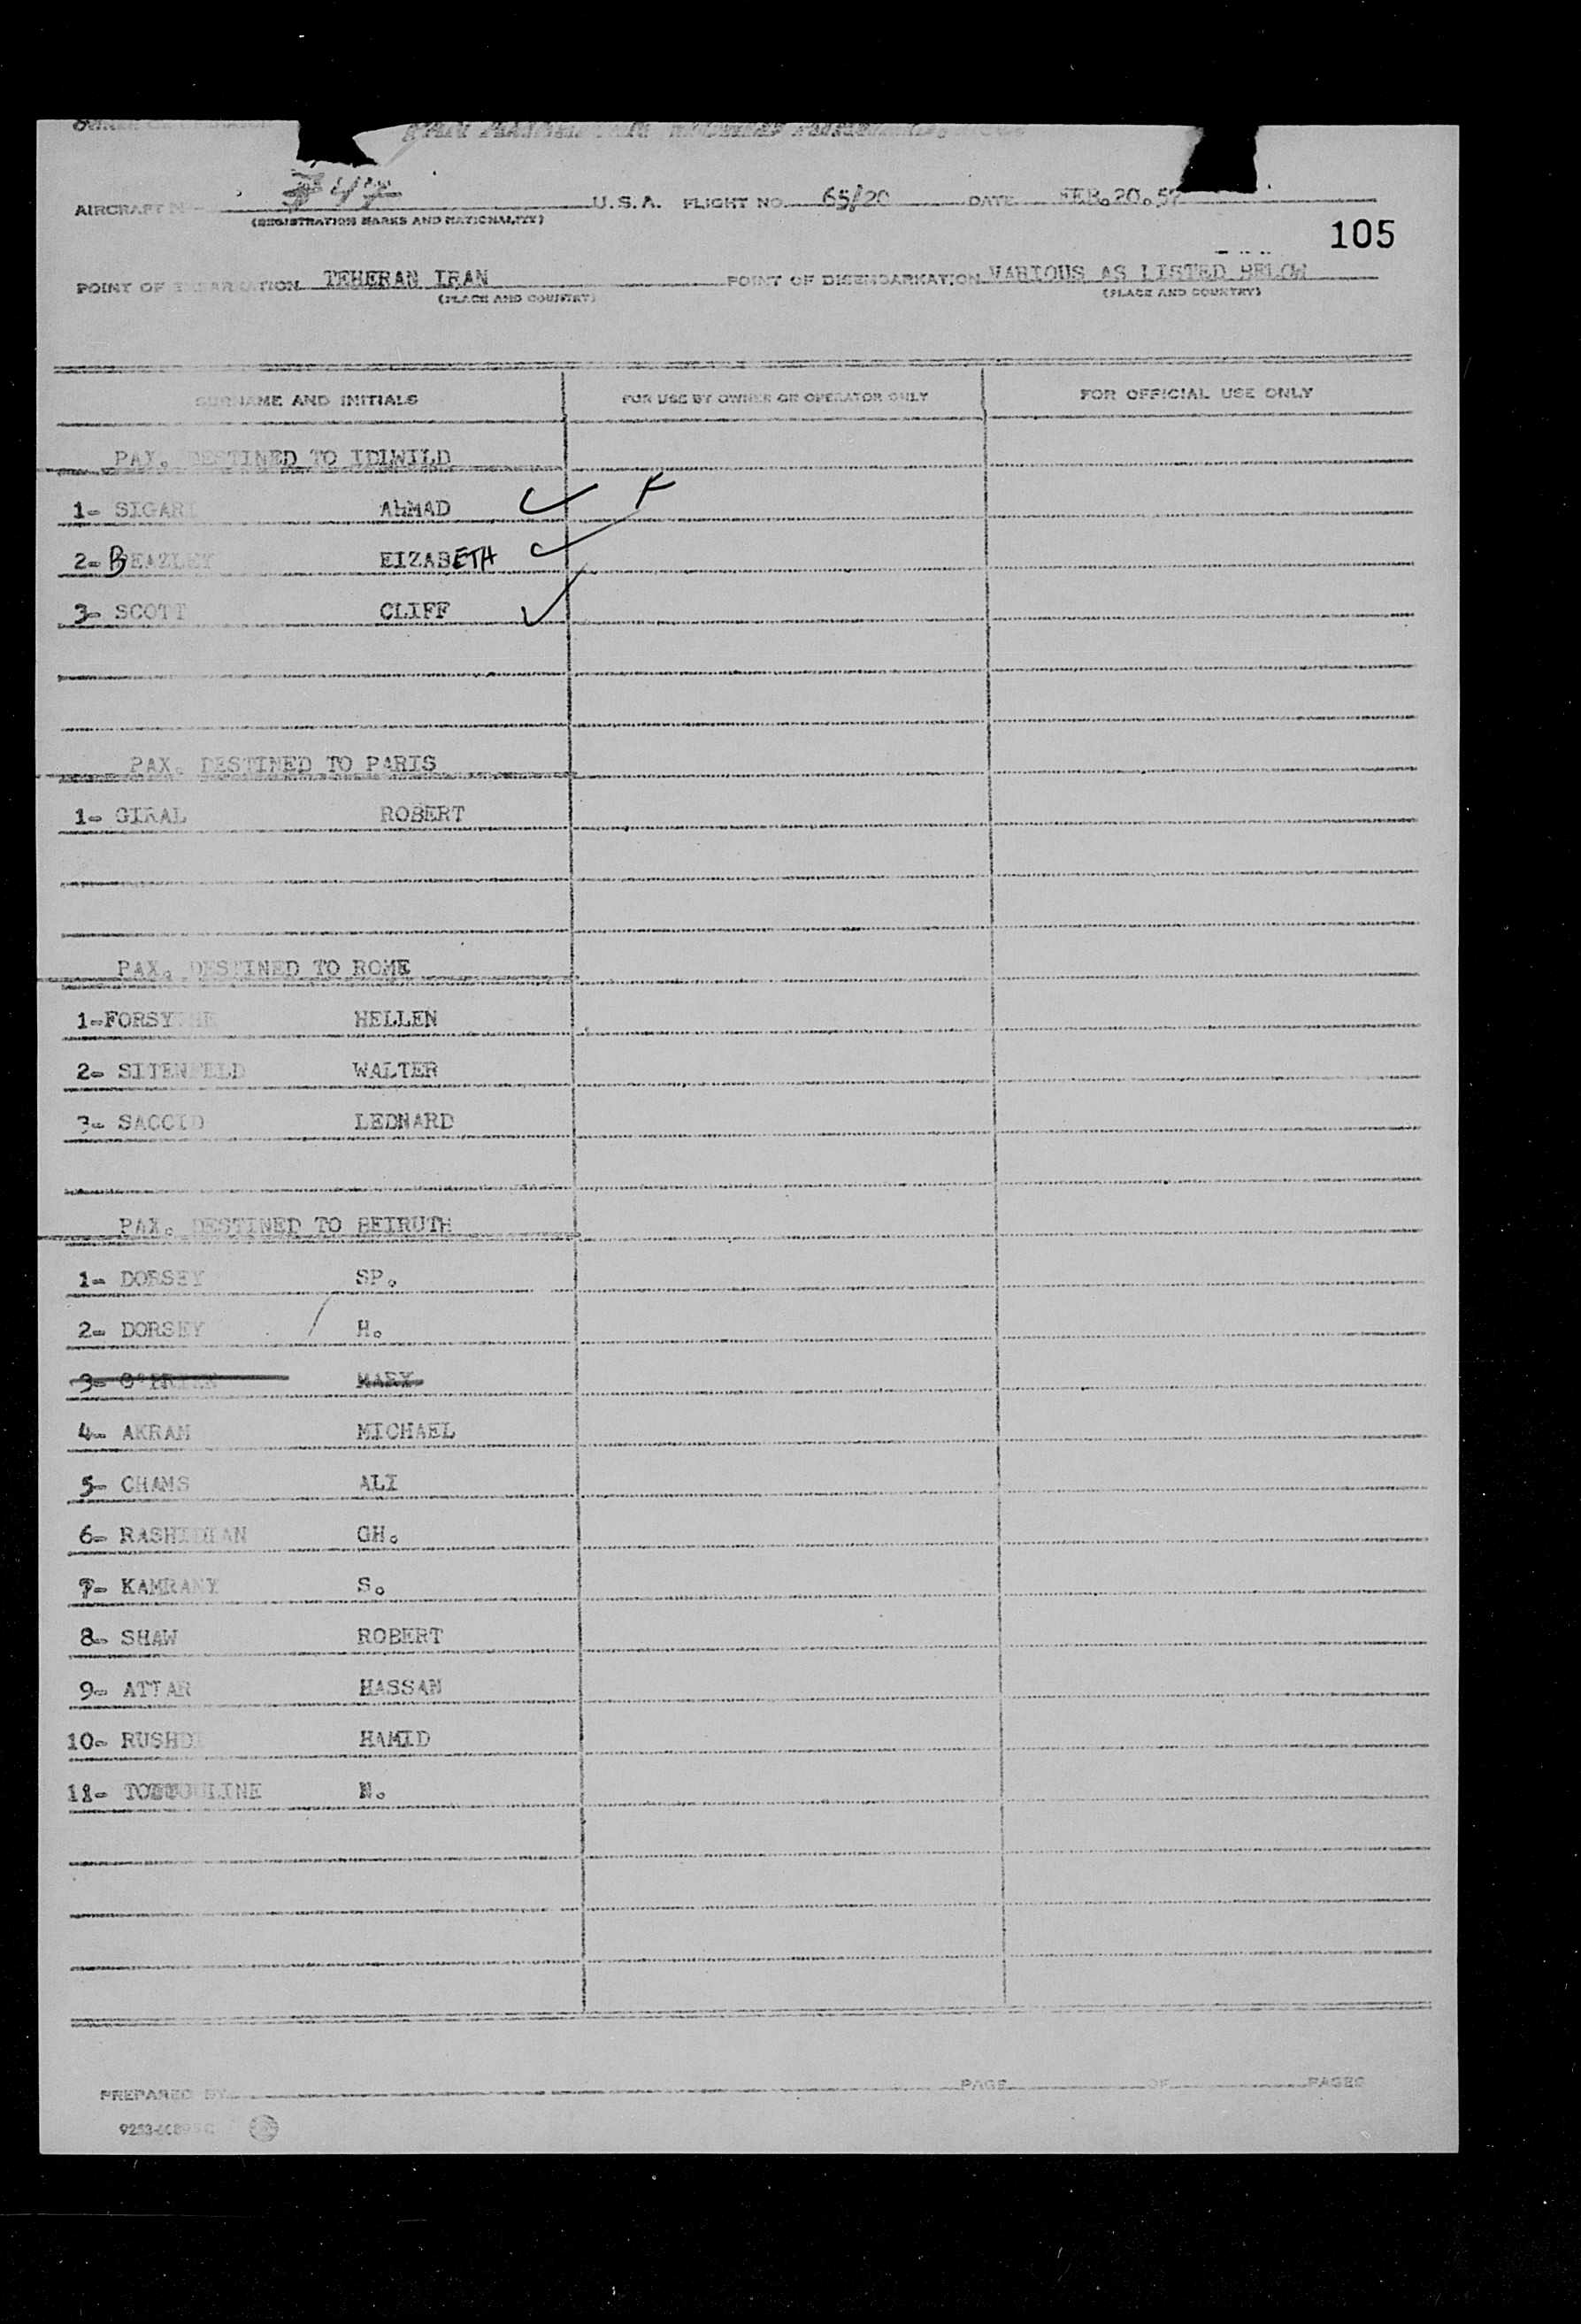 U.S.A. FLIGHT NO. 65/20 DATE FEB.20.57
(REGISTRATION MARKS AND NATIONALITY)
105
POINT OF EMBARKATION TEHERAN IRAN POINT OF DISEMBARKATION VARIOUS AS LISTED BELOW
(PLACE AND COUNTRY) (PLACE AND COUNTRY)
SURNAME AND INITIALS FOR USE BY OWNER OR OPERATOR ONLY FOR OFFICIAL USE ONLY
PAX. DESTINED TO IDIWILD
1- SIGARI AHMAD
2- BEAZLEY EIZABETH
3- SCOTT CLIFF
PAX. DESTINED TO PARIS
1- GIRAL ROBERT
PAX. DESTINED TO ROME
1-FORSYTHE HELLEN
2- SITENFELD WALTER
3- SACCID LEDNARD
PAX. DESTINED TO BEIRUTH
1- DORSEY SP.
2- DORSEY H.
3- MARY
4- AKRAM MICHAEL
5- CHAMS ALI
6- RASHIDIAN GH.
7- KAMRANY S.
8- SHAW ROBERT
9- ATTAR HASSAN
10- RUSHDI HAMID
11- N.
PREPARED BY PAGE OF PAGES